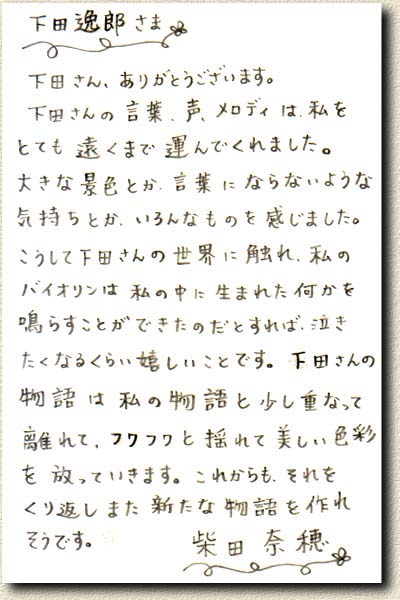 下田逸郎さま
下田さん、ありがとうございます。
下田さんの言葉、声、メロディは、私を
とても遠くまで運んでくれました。
大きな景色とか、言葉にならないような
気持ちとか、いろんなものを感じました。
こうして下田さんの世界に触れ、私の
バイオリンは私の中に生まれた何かを
鳴らすことができたのだとすれば、泣き
たくなるくらい嬉しいことです。下田さんの
物語は私の物語と少し重なって
離れて、フワフワと揺れて美しい色彩
を放っていきます。これからも、それを
くり返しまた新たな物語を作れ
そうです。
柴田奈穂